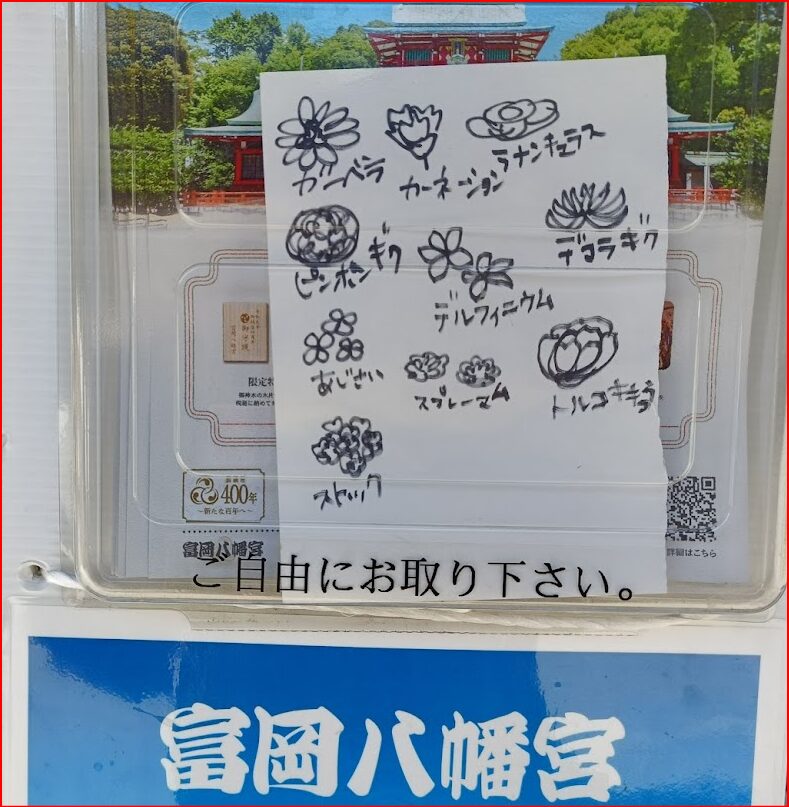 ガーベラ
カーネーション
ラナンキュラス
ピンポンギク
デルフィニウム
デコラギク
あじさい
スプレーマム
トルコキキョウ
ストック
限定
400年
～新たな百年へ～
富岡八幡宮
詳細はこちら
ご自由にお取り下さい。
富岡八幡宮